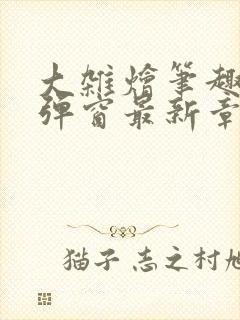 大雑燴筆趣
弹窗最新章
猫子志之村旭